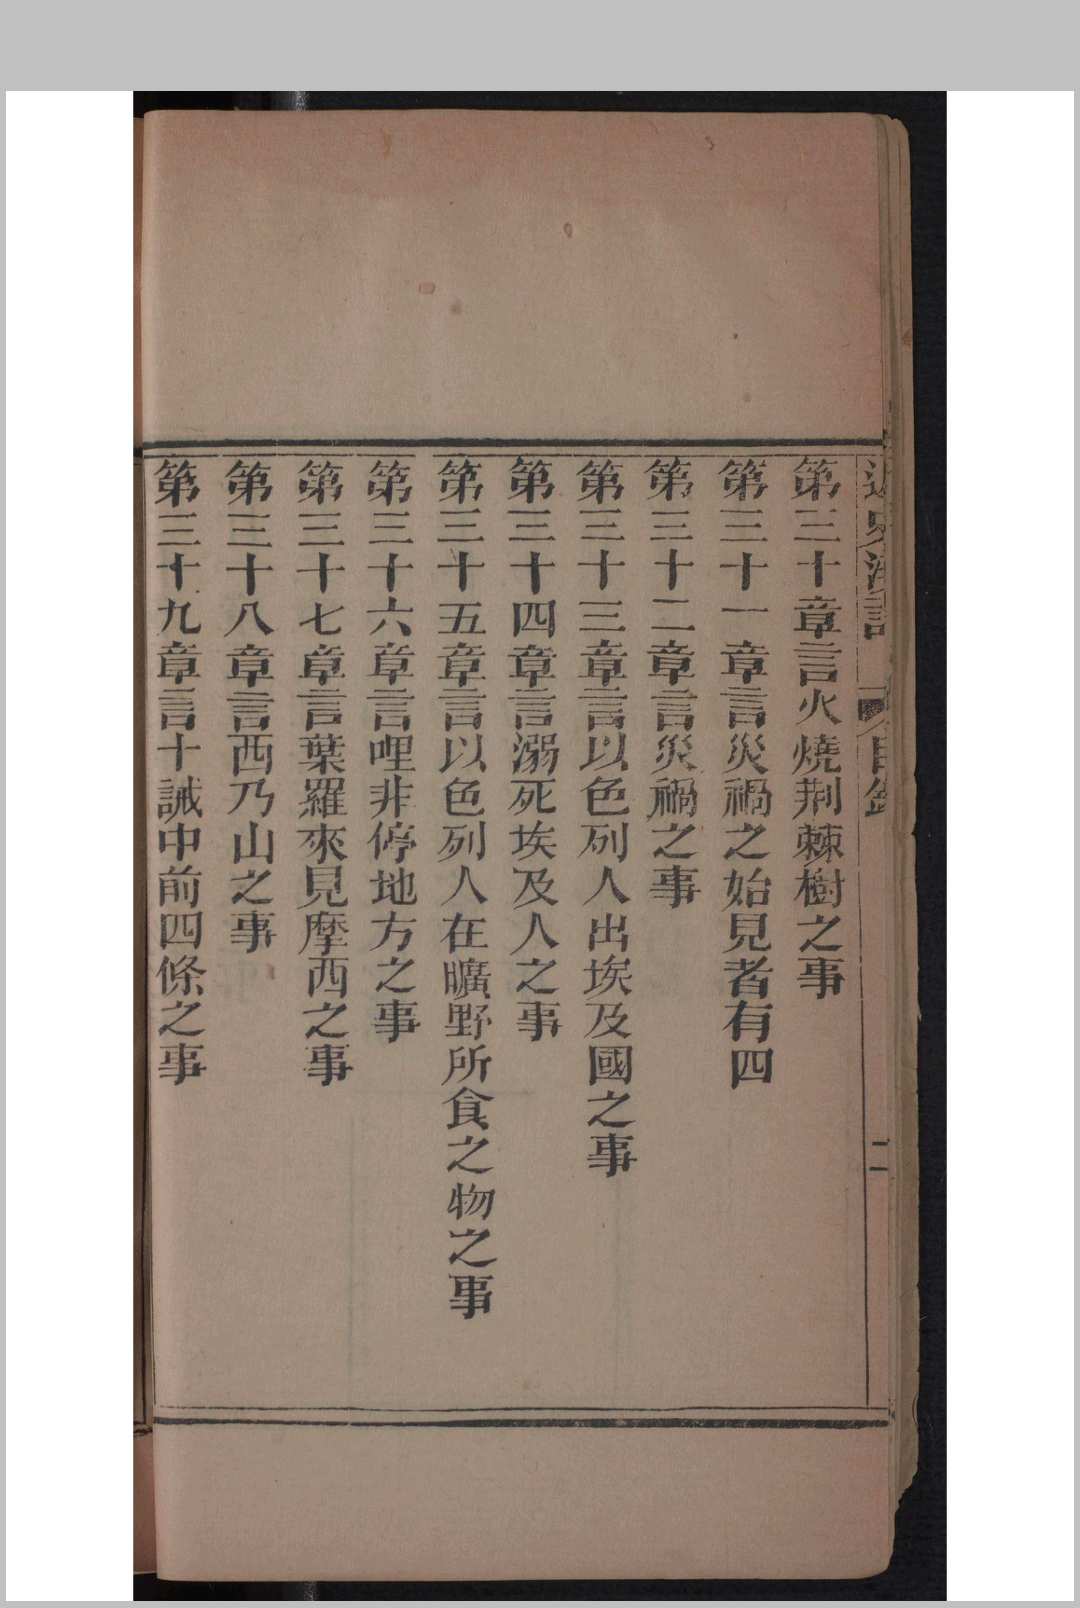 第三十章言火燒荆棘樹之事
第三十一章言災禍之始見者有四
第三十二章言災禍之事
第三十三章言以色列人出埃及國之事
第三十四章言溺死埃及人之事
第三十五章言以色列人在曠野所食之物之事
第三十六章言哩非停地方之事
第三十七章言葉羅來見摩西之事
第三十八章言西乃山之事
第三十九章言十誡中前四條之事